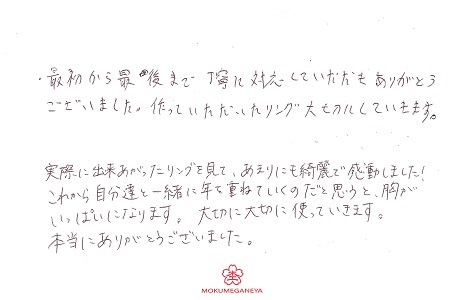 ・最初から最後まで丁寧に対応していただきありがとう
ございました。作っていただいたリング大切にしていきます。
実際に出来あがったリングを見て、あまりにも綺麗で感動しました!
これから自分達と一緒に年を重ねていくのだと思うと、胸が
いっぱいになります。大切に大切に使っていきます。
本当にありがとうございました。
MOKUMEGANEYA